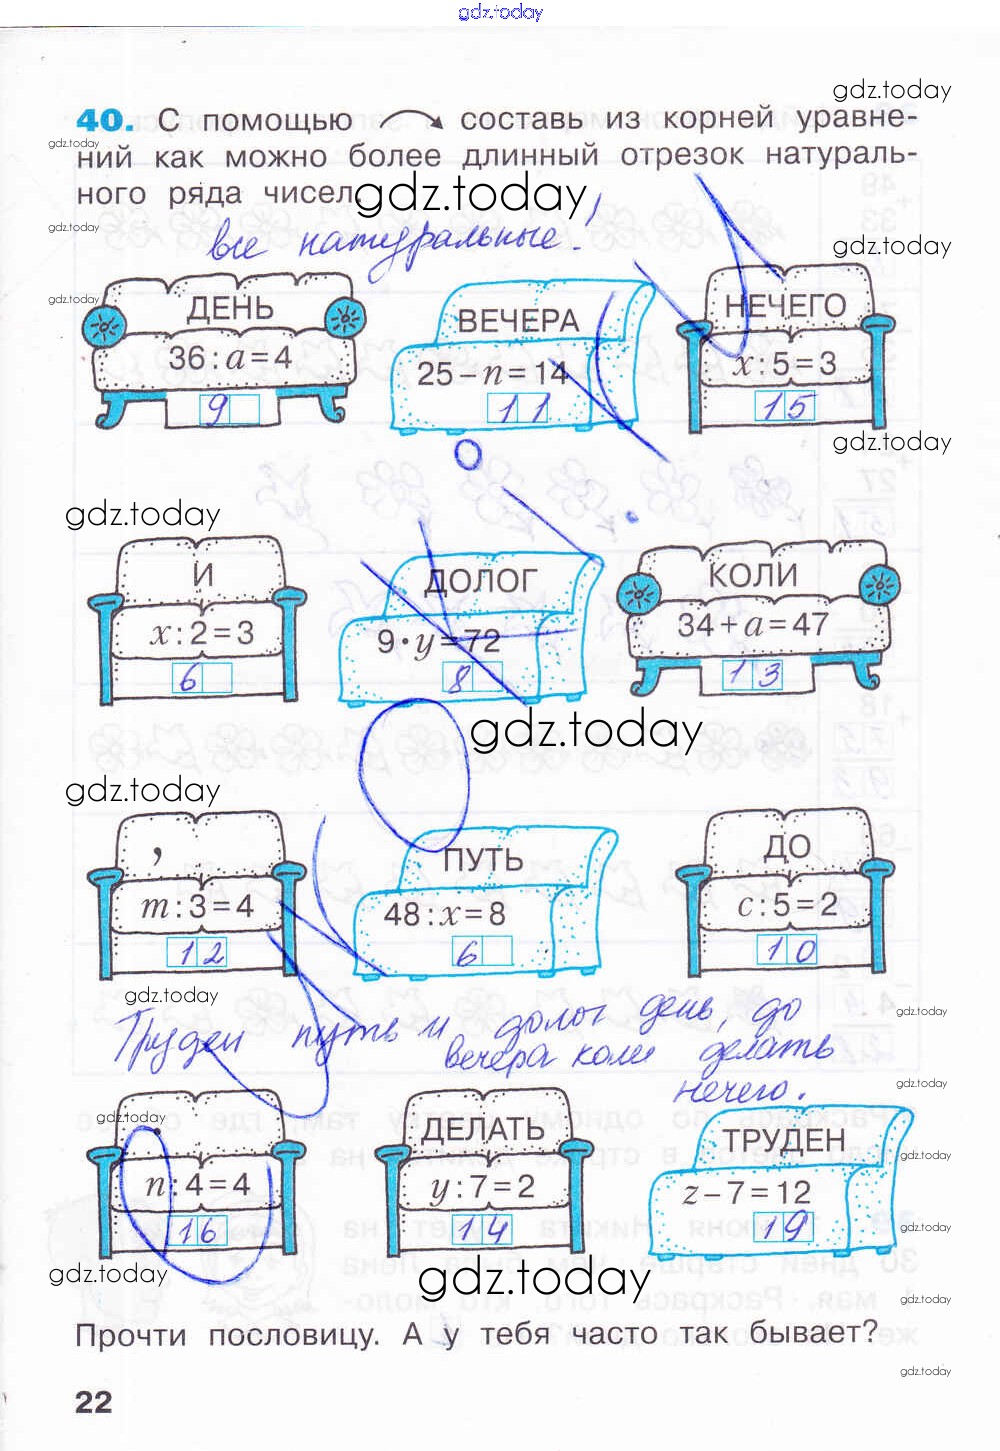 gdz.today
gdz.today
40. С помощью составь из корней уравне-
gdz.today
ний как можно более длинный отрезок натураль-
ного ряда чисел.
gdz.today
gdz.today
все натуральные!
gdz.today
gdz.today
ДЕНЬ
ВЕЧЕРА
НЕЧЕГО
36 : a = 4
25 – n = 14
x : 5 = 3
9
11
15
gdz.today
gdz.today
И
ДОЛОГ
КОЛИ
x : 2 = 3
9 · y = 72
34 + a = 47
6
8
13
gdz.today
gdz.today
,
ПУТЬ
ДО
m : 3 = 4
48 : x = 8
c : 5 = 2
12
6
10
gdz.today
gdz.today
Труден путь и долог день, до
вечера коли делать
нечего.
gdz.today
gdz.today
ДЕЛАТЬ
ТРУДЕН
gdz.today
n : 4 = 4
y : 7 = 2
z – 7 = 12
16
14
19
gdz.today
gdz.today
gdz.today
gdz.today
Прочти пословицу. А у тебя часто так бывает?
gdz.today
22